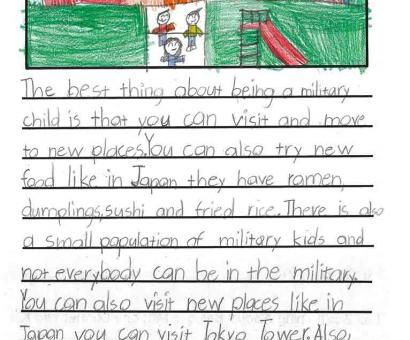 The best thing about being a military
child is that you can visit and move
to new places. You can also try new
food like in Japan they have ramen,
dumplings, sushi and fried rice. There is also
a small population of military kids and
not everybody can be in the military.
You can also visit new places like in
Japan you can visit Tokyo Tower. Also,